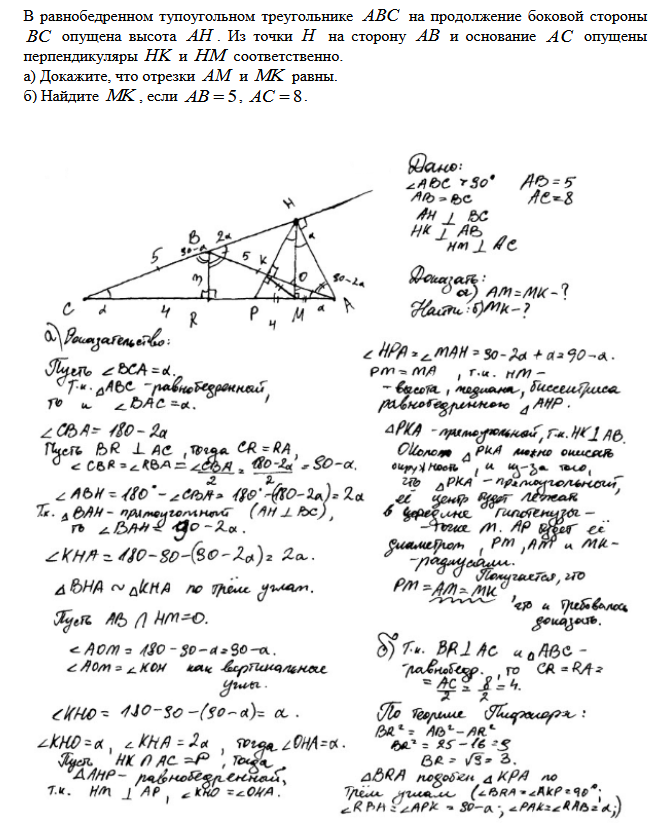 В равнобедренном тупоугольном треугольнике ABC на продолжение боковой стороны
BC опущена высота AH . Из точки H на сторону AB и основание AC опущены
перпендикуляры HK и HM соответственно.
а) Докажите, что отрезки AM и MK равны.
б) Найдите MK , если AB = 5 , AC = 8 .
H
B
2α
90-α
5
5
K
α
O
90-2α
3
C
α
4
R
P
4
M
α
A
Дано:
∠ABC > 90° AB = 5
AB = BC AC = 8
AH ⊥ BC
HK ⊥ AB
HM ⊥ AC
Доказать:
а) AM = MK - ?
Найти: б) MK - ?
а) Доказательство:
Пусть ∠BCA = α.
Т.к. △ABC - равнобедренный,
то и ∠BAC = α.
∠CBA = 180 - 2α
Пусть BR ⊥ AC, тогда CR = RA,
∠CBR = ∠RBA = ∠CBA/2 = 180-2α/2 = 90-α.
∠ABH = 180° - ∠CBA = 180° - (180-2α) = 2α
Т.к. △BAH - прямоугольный (AH ⊥ BC),
то ∠BAH = 90 - 2α.
∠KHA = 180 - 90 - (90 - 2α) = 2α.
△BHA ~ △KHA по трём углам.
Пусть AB ∩ HM = O.
∠AOM = 180 - 90 - α = 90 - α.
∠AOM = ∠KOH как вертикальные
углы.
∠KHO = 180 - 90 - (90 - α) = α.
∠KHO = α, ∠KHA = 2α, тогда ∠OHA = α.
Пусть HK ∩ AC = P, тогда
△AHP - равнобедренный,
т.к. HM ⊥ AP, ∠KHO = ∠OHA.
∠HPA = ∠MAH = 90 - 2α + α = 90 - α.
PM = MA, т.к. HM -
- высота, медиана, биссектриса
равнобедренного △AHP.
△PKA - прямоугольный, т.к. HK ⊥ AB.
Около △PKA можно описать
окружность, и из-за того,
что △PKA - прямоугольный,
её центр будет лежать
в середине гипотенузы -
- точке M. AP будет её
диаметром, PM, AM и MK -
- радиусами.
Получается, что
PM = AM = MK,
что и требовалось
доказать.
б) Т.к. BR ⊥ AC и △ABC -
- равнобедр., то CR = RA =
= AC/2 = 8/2 = 4.
По теореме Пифагора:
BR² = AB² - AR²
BR² = 25 - 16 = 9
BR = √9 = 3.
△BRA подобен △KPA по
трём углам (∠BRA = ∠AKP = 90°;
∠RBA = ∠APK = 90 - α; ∠PAK = ∠RAB = α;)